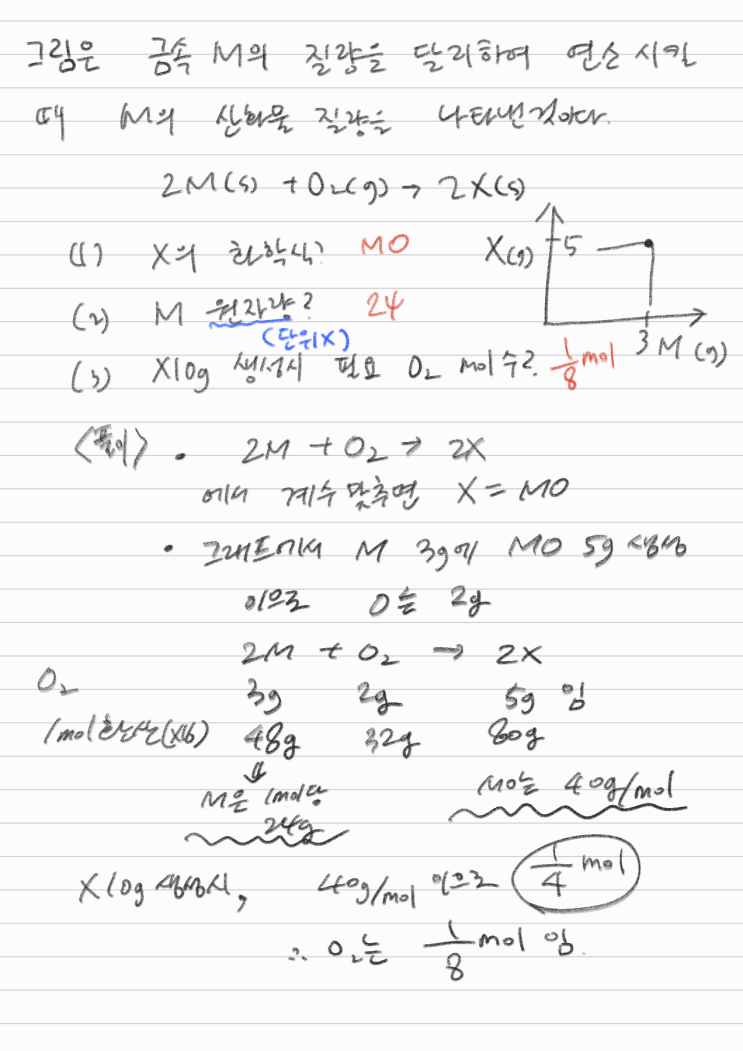 그림은 금속 M의 질량을 달리하여 연소 시킬
때 M의 산화물 질량을 나타낸것이다.
2M(s) + O₂(g) → 2X(s)
(1) X의 화학식? MO
(2) M 원자량? 24
(단위X)
(3) X10g 생성시 필요 O₂ mol 수? 1/8 mol
X(g) 5
3 M (g)
<풀이> • 2M + O₂ → 2X
에서 계수 맞추면 X = MO
• 그래프에서 M 3g에 MO 5g 생성
이으로 O는 2g
2M + O₂ → 2X
3g 2g 5g 임
O₂
1mol환산(X16) 48g 32g 80g
M은 1mol당
24g
MO는 40g/mol
X10g 생성시, 40g/mol 이으로 1/4 mol
∴ O₂는 1/8 mol 임.